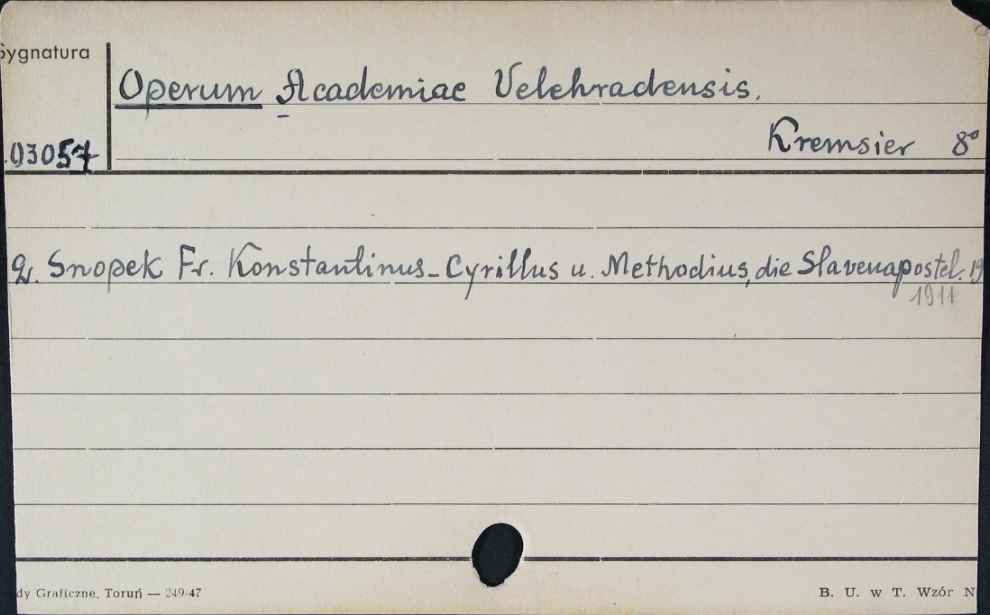 Sygnatura
Operum Academiae Velehradensis.
Kremsier 8°
03057
2. Snopek Fr. Konstantinus-Cyrillus u. Methodius, die Slavenapostel. 19
1911
dy Graficzne, Toruń — 249-47
B. U. w T. Wzór N